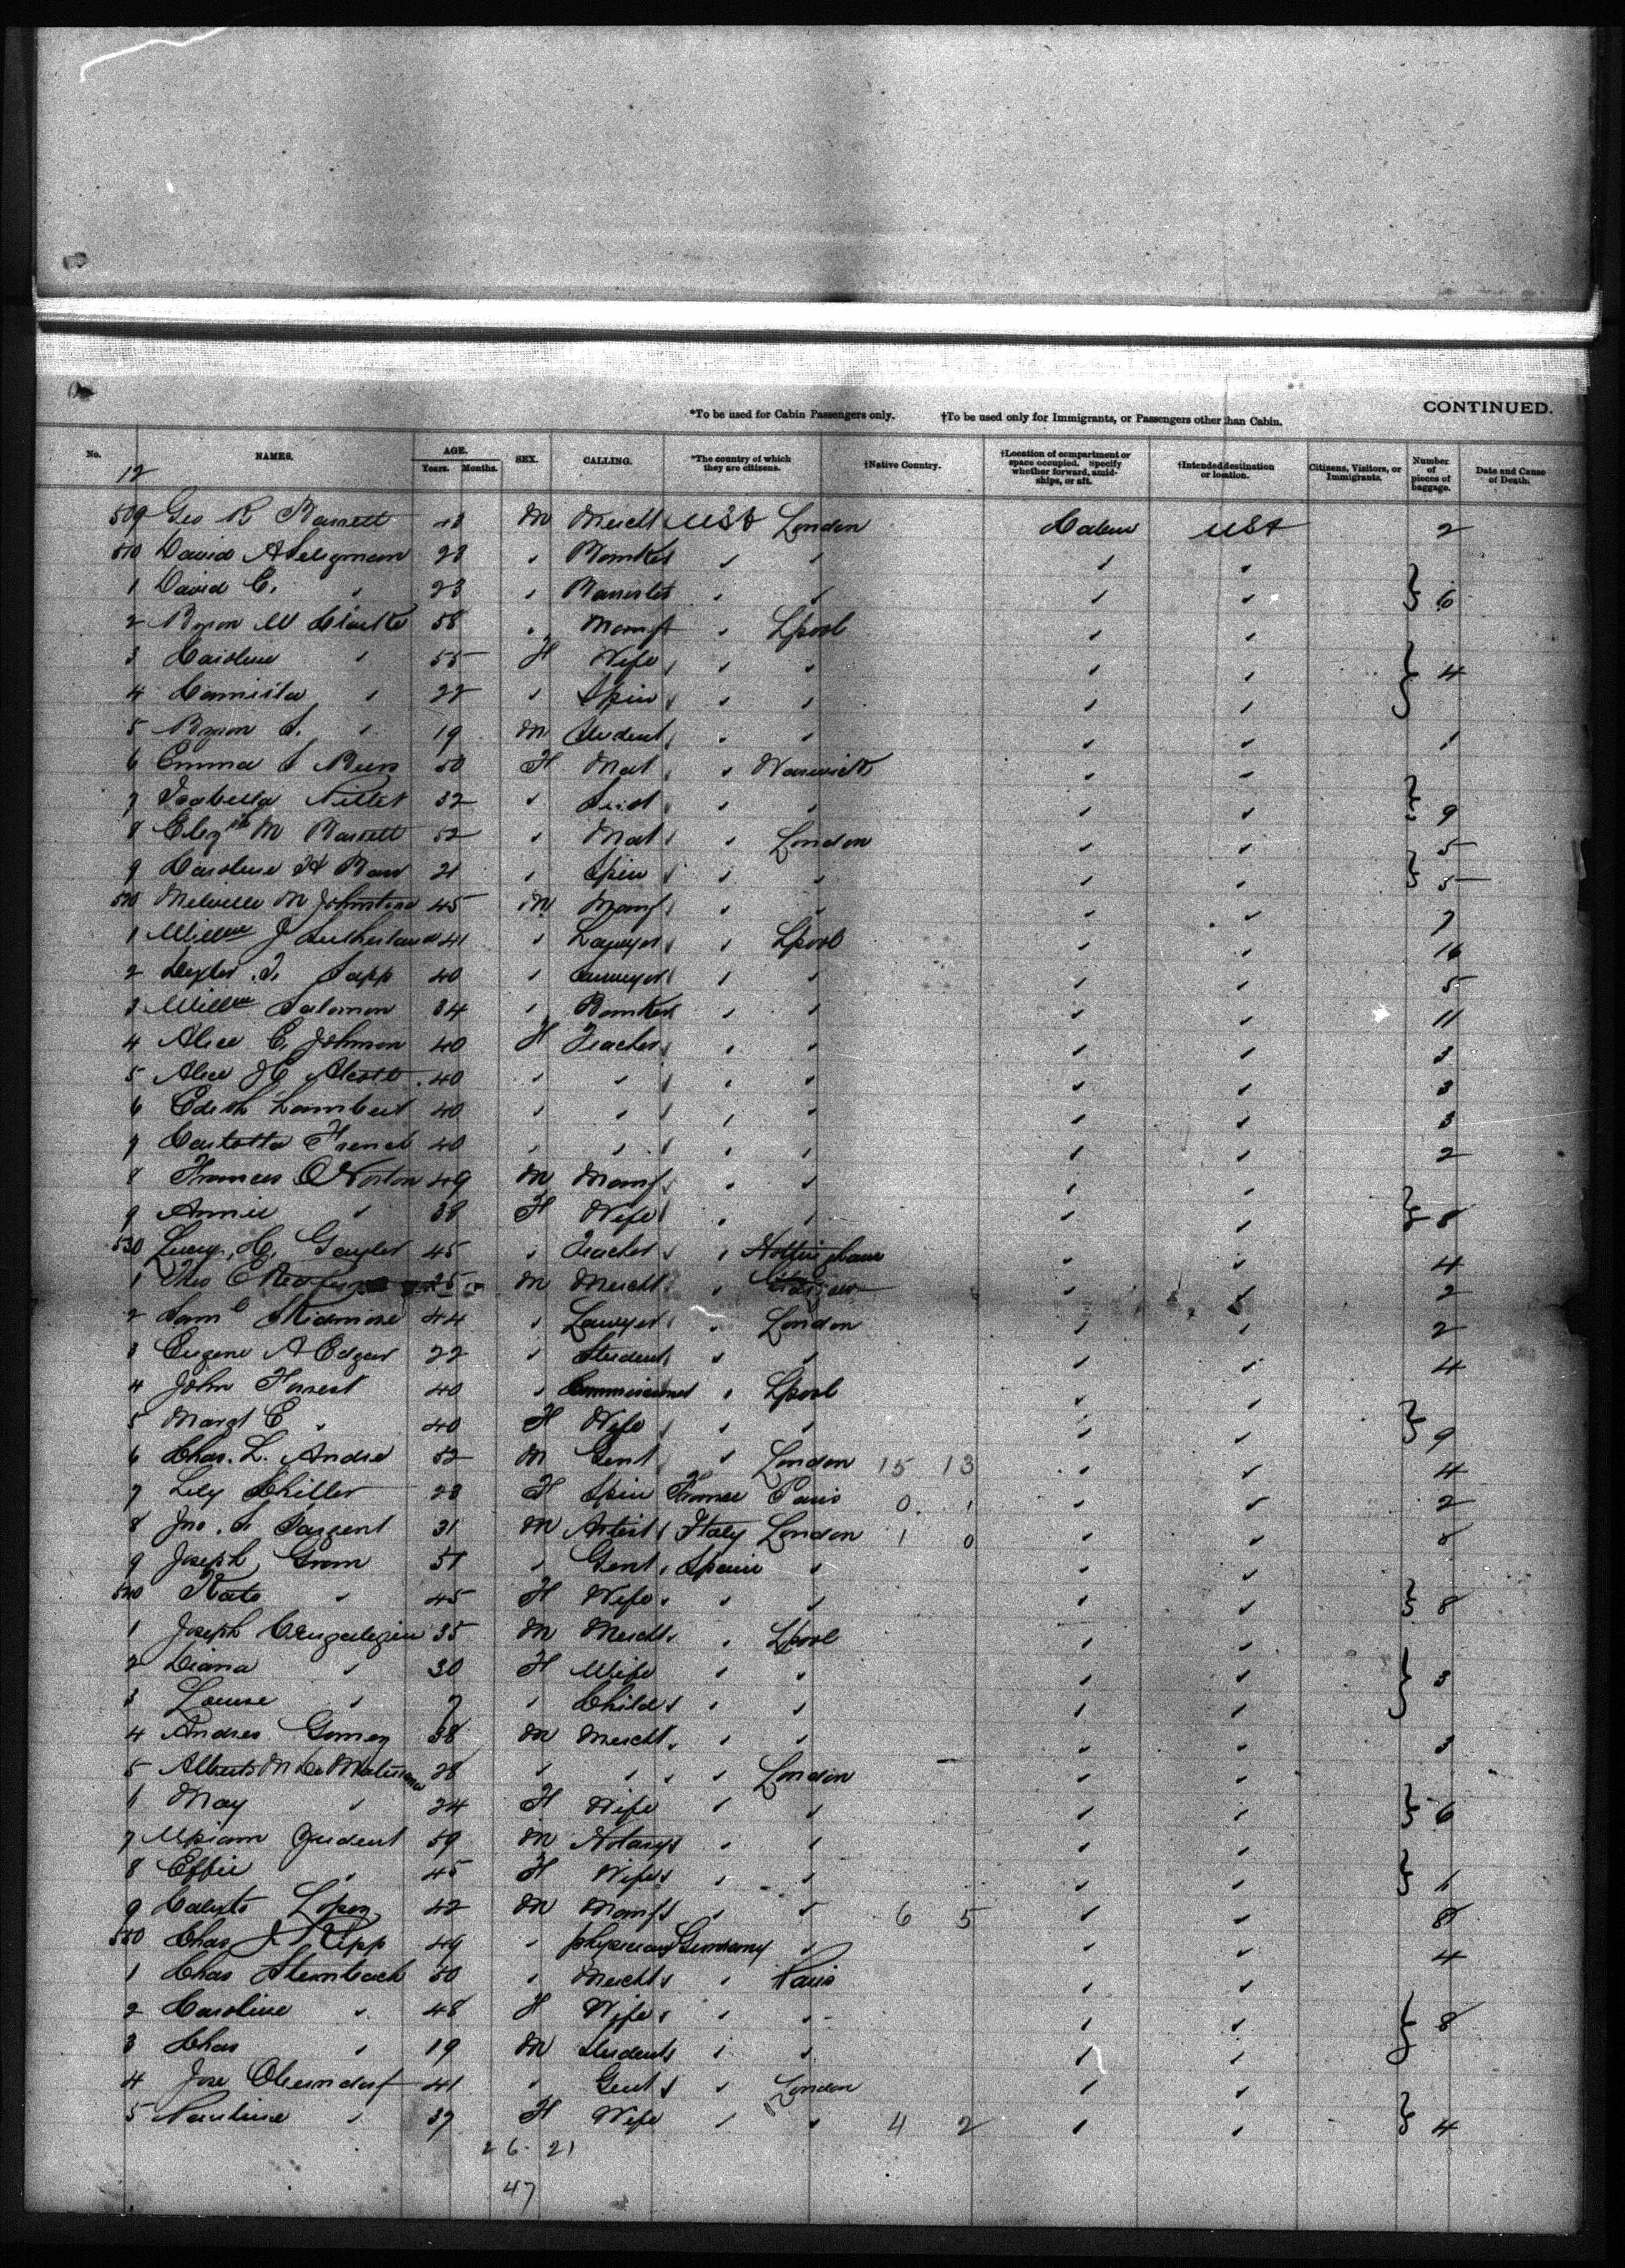 CONTINUED.
*To be used for Cabin Passengers only. †To be used only for Immigrants, or Passengers other than Cabin.
No. NAMES. AGE. Years. Months. SEX. CALLING. *The country of which they are citizens. †Native Country. †Location of compartment or space occupied. Specify whether forward, amidships, or aft. †Intended destination or location. Citizens, Visitors, or Immigrants. Number of pieces of baggage. Date and Cause of Death.
12
509 Geo R Barrett M Mercht USA London USA 2
510 David A Seligman 28 " "
1 David C. " 23 " Barrister " " " " 6
2 Byron W Clarke 58 " Manf " Lpool " "
3 Caroline " 55 F Wife " " " " 4
4 " 22 " Spin " " " "
5 Byron S. " 19 M Student " " " " 1
6 Emma S 50 F Mat " Warwick " "
7 Isabella 32 " " " " " 9
8 Elizth M Barrett 52 " Mat " London " " 5
9 Caroline H 21 " Spin " " " " 5
520 Melville M Johnston 45 M Manf " " " " 7
1 Willm J Sutherland 41 " Lawyer " Lpool " " 16
2 Sapp 40 " " " " " 5
3 Willm Salomon 34 " Banker " " " " 11
4 Alice C. Johnson 40 F Teacher " " " " 3
5 Alice 40 " " " " " " 3
6 Edith Lambert 40 " " " " " " 3
7 Carlotta French 40 " " " " " " 2
8 Frances O Norton 49 M Manf " " " "
9 Annie " 38 F Wife " " " " 8
530 Lucy H. Gaylor 45 " Teacher " Nottingham " " 4
1 Theo C 25 M Mercht " " " 2
2 Saml Skidmore 44 " Lawyer " London " " 2
3 Eugene A Edgar 22 " Student " " " " 4
4 John Forrest 40 " " Lpool " "
5 Margt C " 40 F Wife " " " " 9
6 Chas. L. Andre 52 M Gent " London 15 13 " " 4
7 Lily Schiller 28 F Spin France Paris 0 1 " " 2
8 Jno. S. Sargent 31 M Artist Italy London 1 0 " " 8
9 Joseph 51 " Gent Spain " " "
540 Kate " 45 F Wife " " " " 8
1 Joseph 35 M Mercht " Lpool " "
2 Diana " 30 F Wife " " " " 3
3 Louise " 7 " Child " " " "
4 Andres Gomez 38 M Mercht " " " " 3
5 Alberto M 28 " " " London " "
6 May " 24 F Wife " " " " 6
7 59 M Notary " " " "
8 Effie " 45 F Wife " " " " 1
9 Calixto Lopez 42 M Manf " " 6 5 " " 8
550 Chas J Kipp 49 " physician Germany " " " 4
1 Chas Steinbach 50 " Mercht " Paris " "
2 Caroline " 48 F Wife " " " " 8
3 Chas " 19 M Student " " " "
4 Jose Oberndorf 41 " Gent " London " "
5 Pauline " 37 F Wife " " 4 2 " " 4
26. 21
47